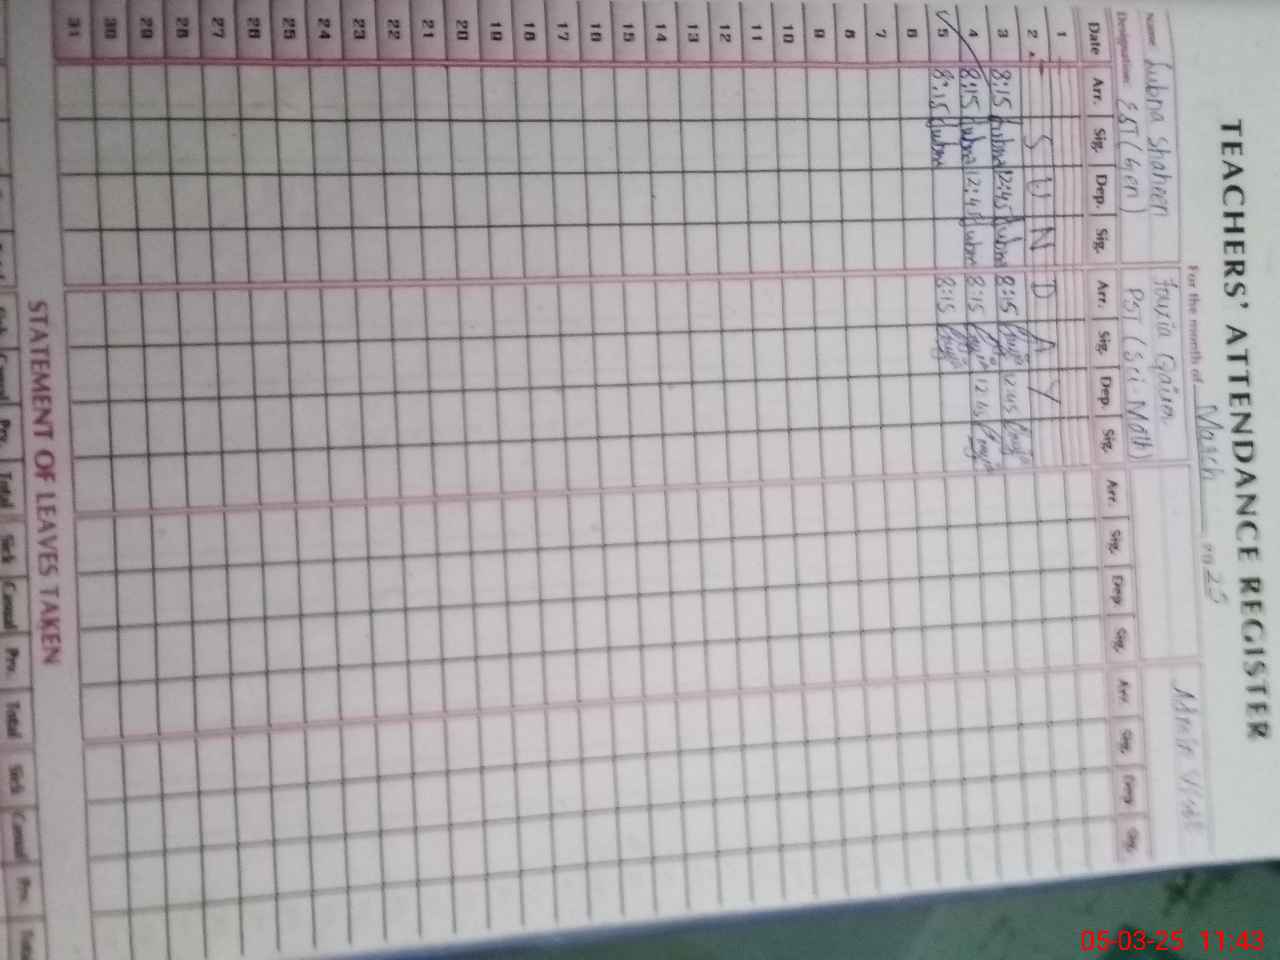 TEACHERS' ATTENDANCE REGISTER
For the month of March 2025
Name Lubna Shaheen Fouzia Admin Visit
Designation EST (Gen) PST (Sci-Math)
Date Arr. Sig. Dep. Sig. Arr. Sig. Dep. Sig. Arr. Sig. Dep. Sig. Arr. Sig. Dep. Sig.
1
2 S U N D A Y
3 8:15 Lubna 12:45 Lubna 8:15 12:45
4 8:15 Lubna 12:45 Lubna 8:15 12:45
5 8:15 Lubna 8:15
6
7
8
9
10
11
12
13
14
15
16
17
18
19
20
21
22
23
24
25
26
27
28
29
30
31
STATEMENT OF LEAVES TAKEN
Casual Prv. Total Sick Casual Prv. Total Sick Casual Prv. Total
05-03-25 11:43